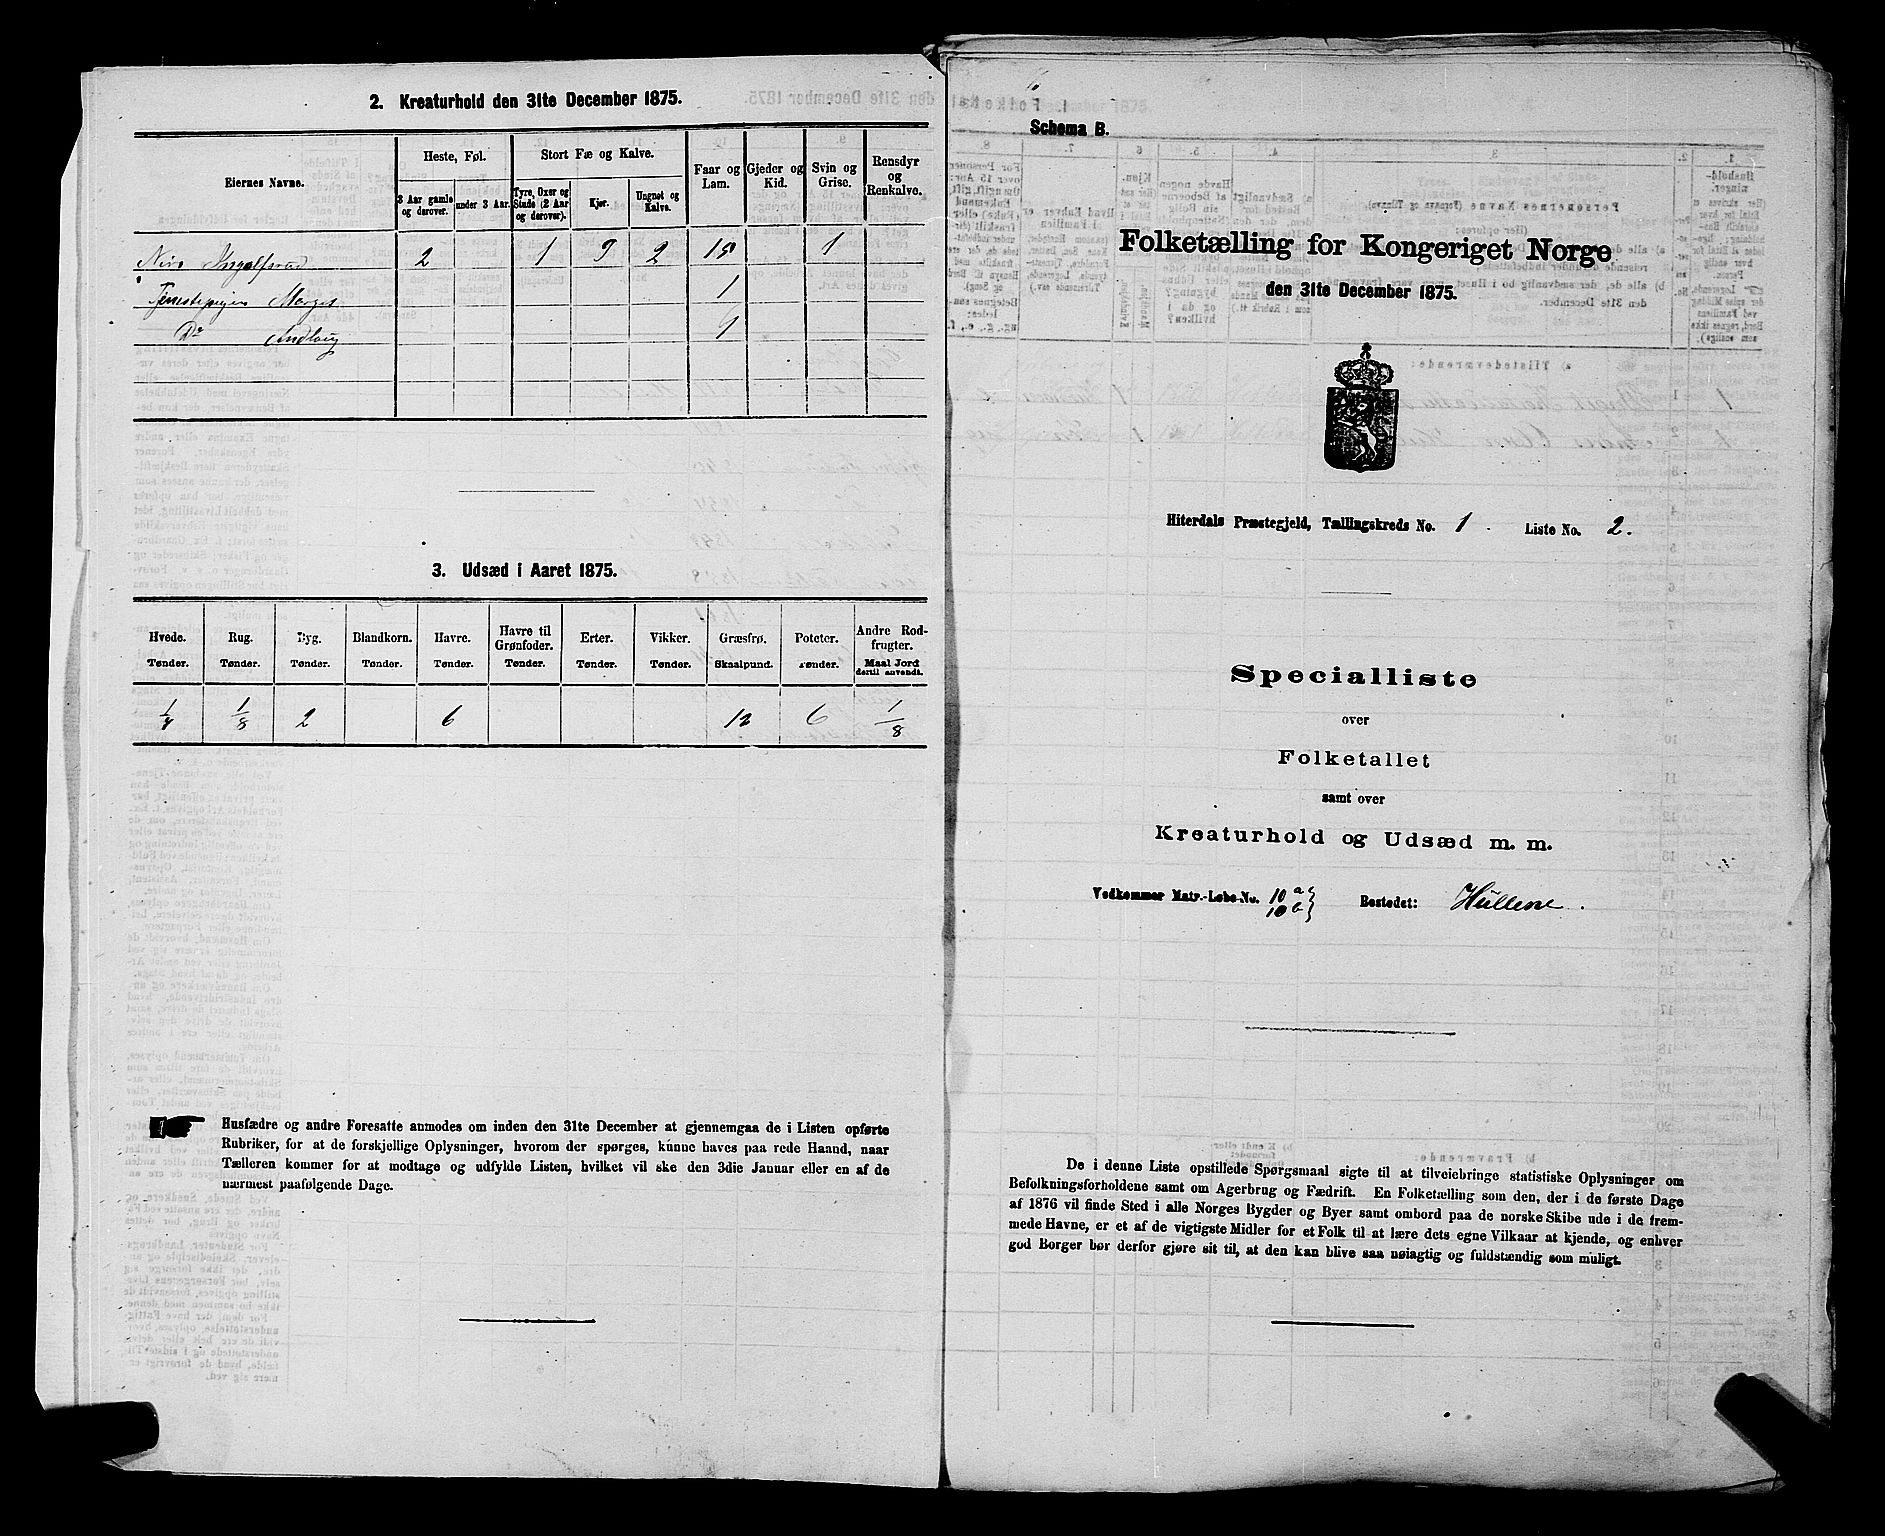 2. Kreaturhold den 31te December 1875.
Eiernes Navne.
Heste, Føl.
3 Aar gamle og derover.
under 3 Aar.
Stort Fæ og Kalve.
Tyre, Oxer og Stude (2 Aar og derover).
Kjør.
Ungnøt og Kalve.
Faar og Lam.
Gjeder og Kid.
Svin og Grise.
Rensdyr og Renkalve.
Ingolfsrud 2 1 9 2 15 1
Tjenestepigen Marget 1
Do 1
3. Udsæd i Aaret 1875.
Hvede. Rug. Byg. Blandkorn. Havre. Havre til Grønfoder. Erter. Vikker. Græsfrø. Poteter. Andre Rodfrugter.
Tønder. Tønder. Tønder. Tønder. Tønder. Tønder. Tønder. Tønder. Skaalpund. Tønder. Maal Jord dertil anvendt.
1/4 1/8 2 6 12 6 1/8
Husfædre og andre Foresatte anmodes om inden den 31te December at gjennemgaa de i Listen opførte
Rubriker, for at de forskjellige Oplysninger, hvorom der spørges, kunne haves paa rede Haand, naar
Tælleren kommer for at modtage og udfylde Listen, hvilket vil ske den 3die Januar eller en af de
nærmest paafølgende Dage.
Schema B.
Folketælling for Kongeriget Norge
den 31te December 1875.
Hiterdals Præstegjeld, Tællingskreds No. 1. Liste No. 2.
Specialliste
over
Folketallet
samt over
Kreaturhold og Udsæd m. m.
Vedkommer Matr.-Løbe-No. 10 a 10 b Bostedet: Hullene.
De i denne Liste opstillede Spørgsmaal sigte til at tilveiebringe statistiske Oplysninger om
Befolkningsforholdene samt om Agerbrug og Fædrift. En Folketælling som den, der i de første Dage
af 1876 vil finde Sted i alle Norges Bygder og Byer samt ombord paa de norske Skibe ude i de frem-
mede Havne, er et af de vigtigste Midler for et Folk til at lære dets egne Vilkaar at kjende, og enhver
god Borger bør derfor gjøre sit til, at den kan blive saa nøiagtig og fuldstændig som muligt.